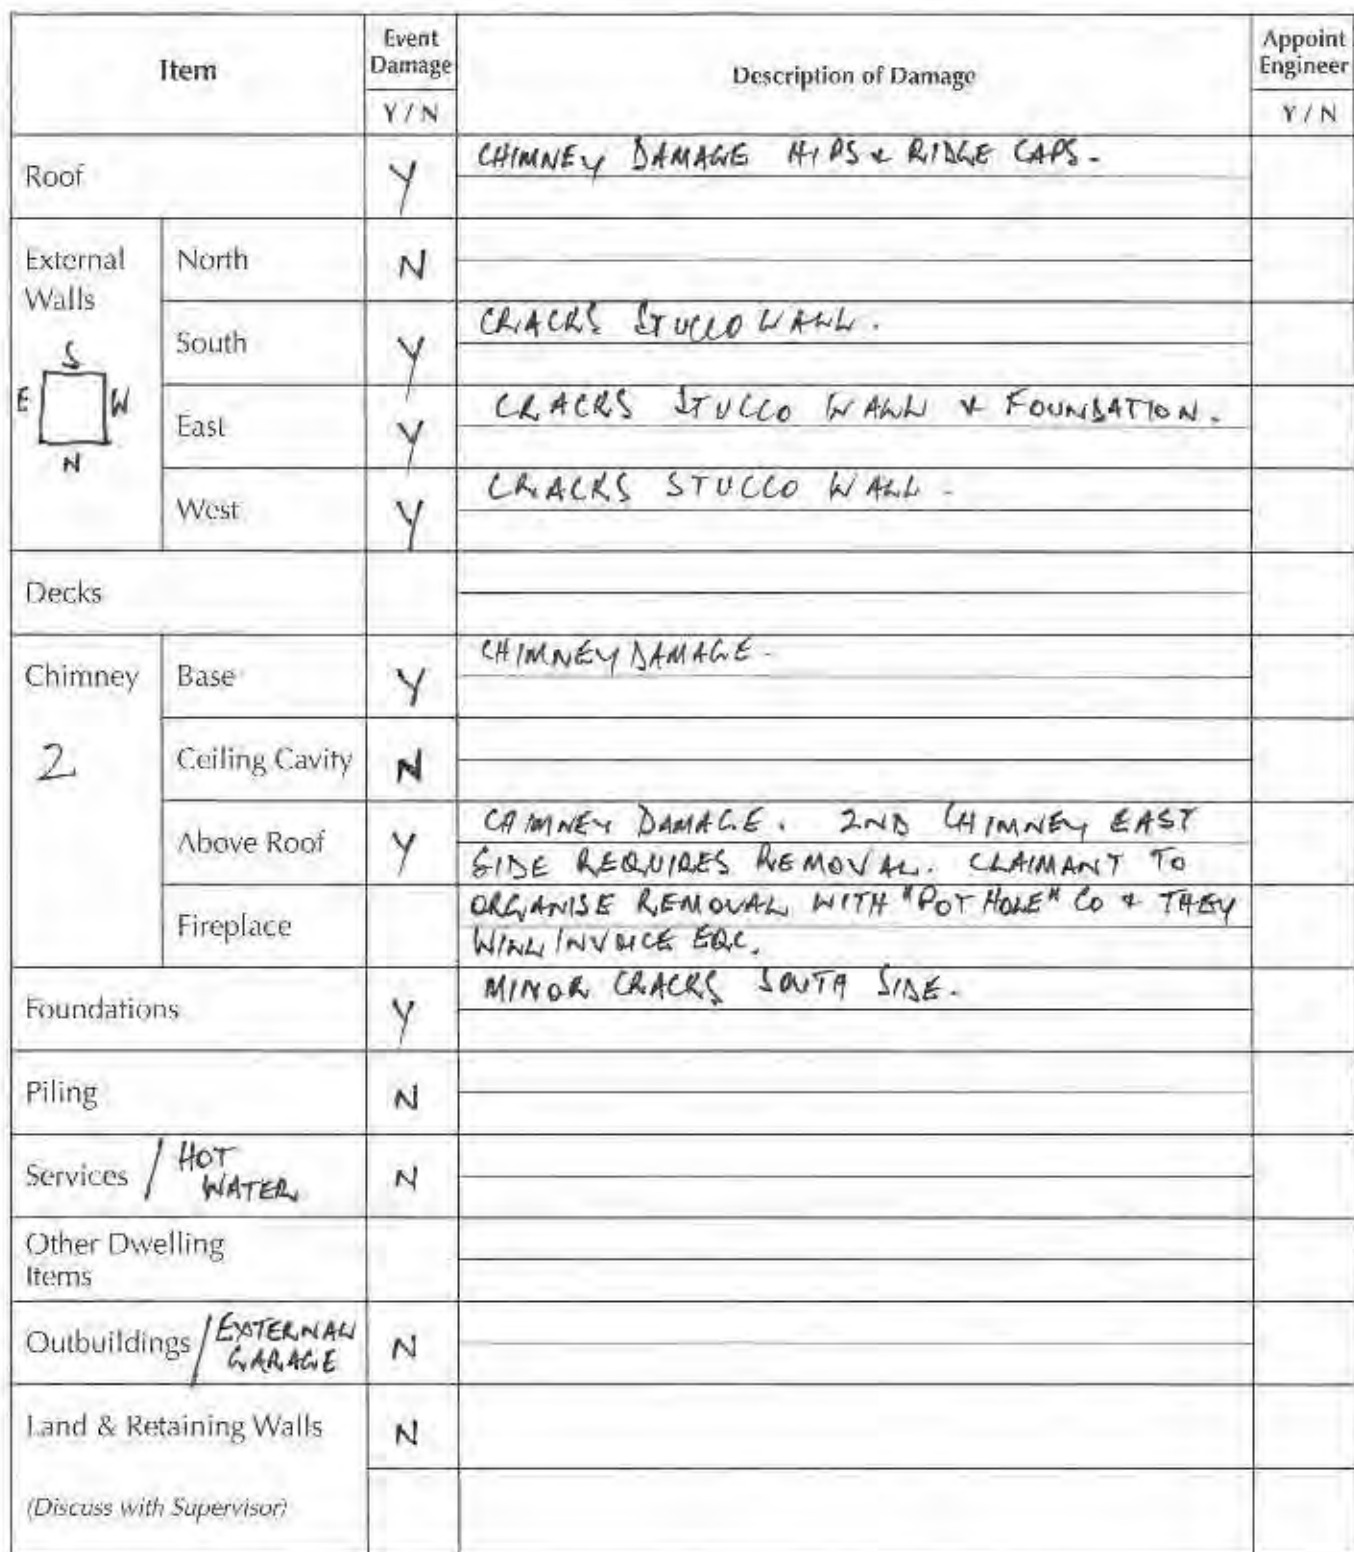 Item
Event Damage
Description of Damage
Appoint Engineer
Y / N
Y / N
Roof
Y
CHIMNEY DAMAGE HIPS & RIDGE CAPS.
External Walls
S
E
W
N
North
N
South
Y
CRACKS STUCCO WALL.
East
Y
CRACKS STUCCO WALL & FOUNDATION.
West
Y
CRACKS STUCCO WALL.
Decks
Chimney
2
Base
Y
CHIMNEY DAMAGE.
Ceiling Cavity
N
Above Roof
Y
CHIMNEY DAMAGE. 2ND CHIMNEY EAST
SIDE REQUIRES REMOVAL. CLAIMANT TO
Fireplace
ORGANISE REMOVAL WITH "POT HOLE" CO & THEY
WILL INVOICE EQC.
Foundations
Y
MINOR CRACKS SOUTH SIDE.
Piling
N
Services / HOT WATER
N
Other Dwelling
Items
Outbuildings / EXTERNAL GARAGE
N
Land & Retaining Walls
N
(Discuss with Supervisor)